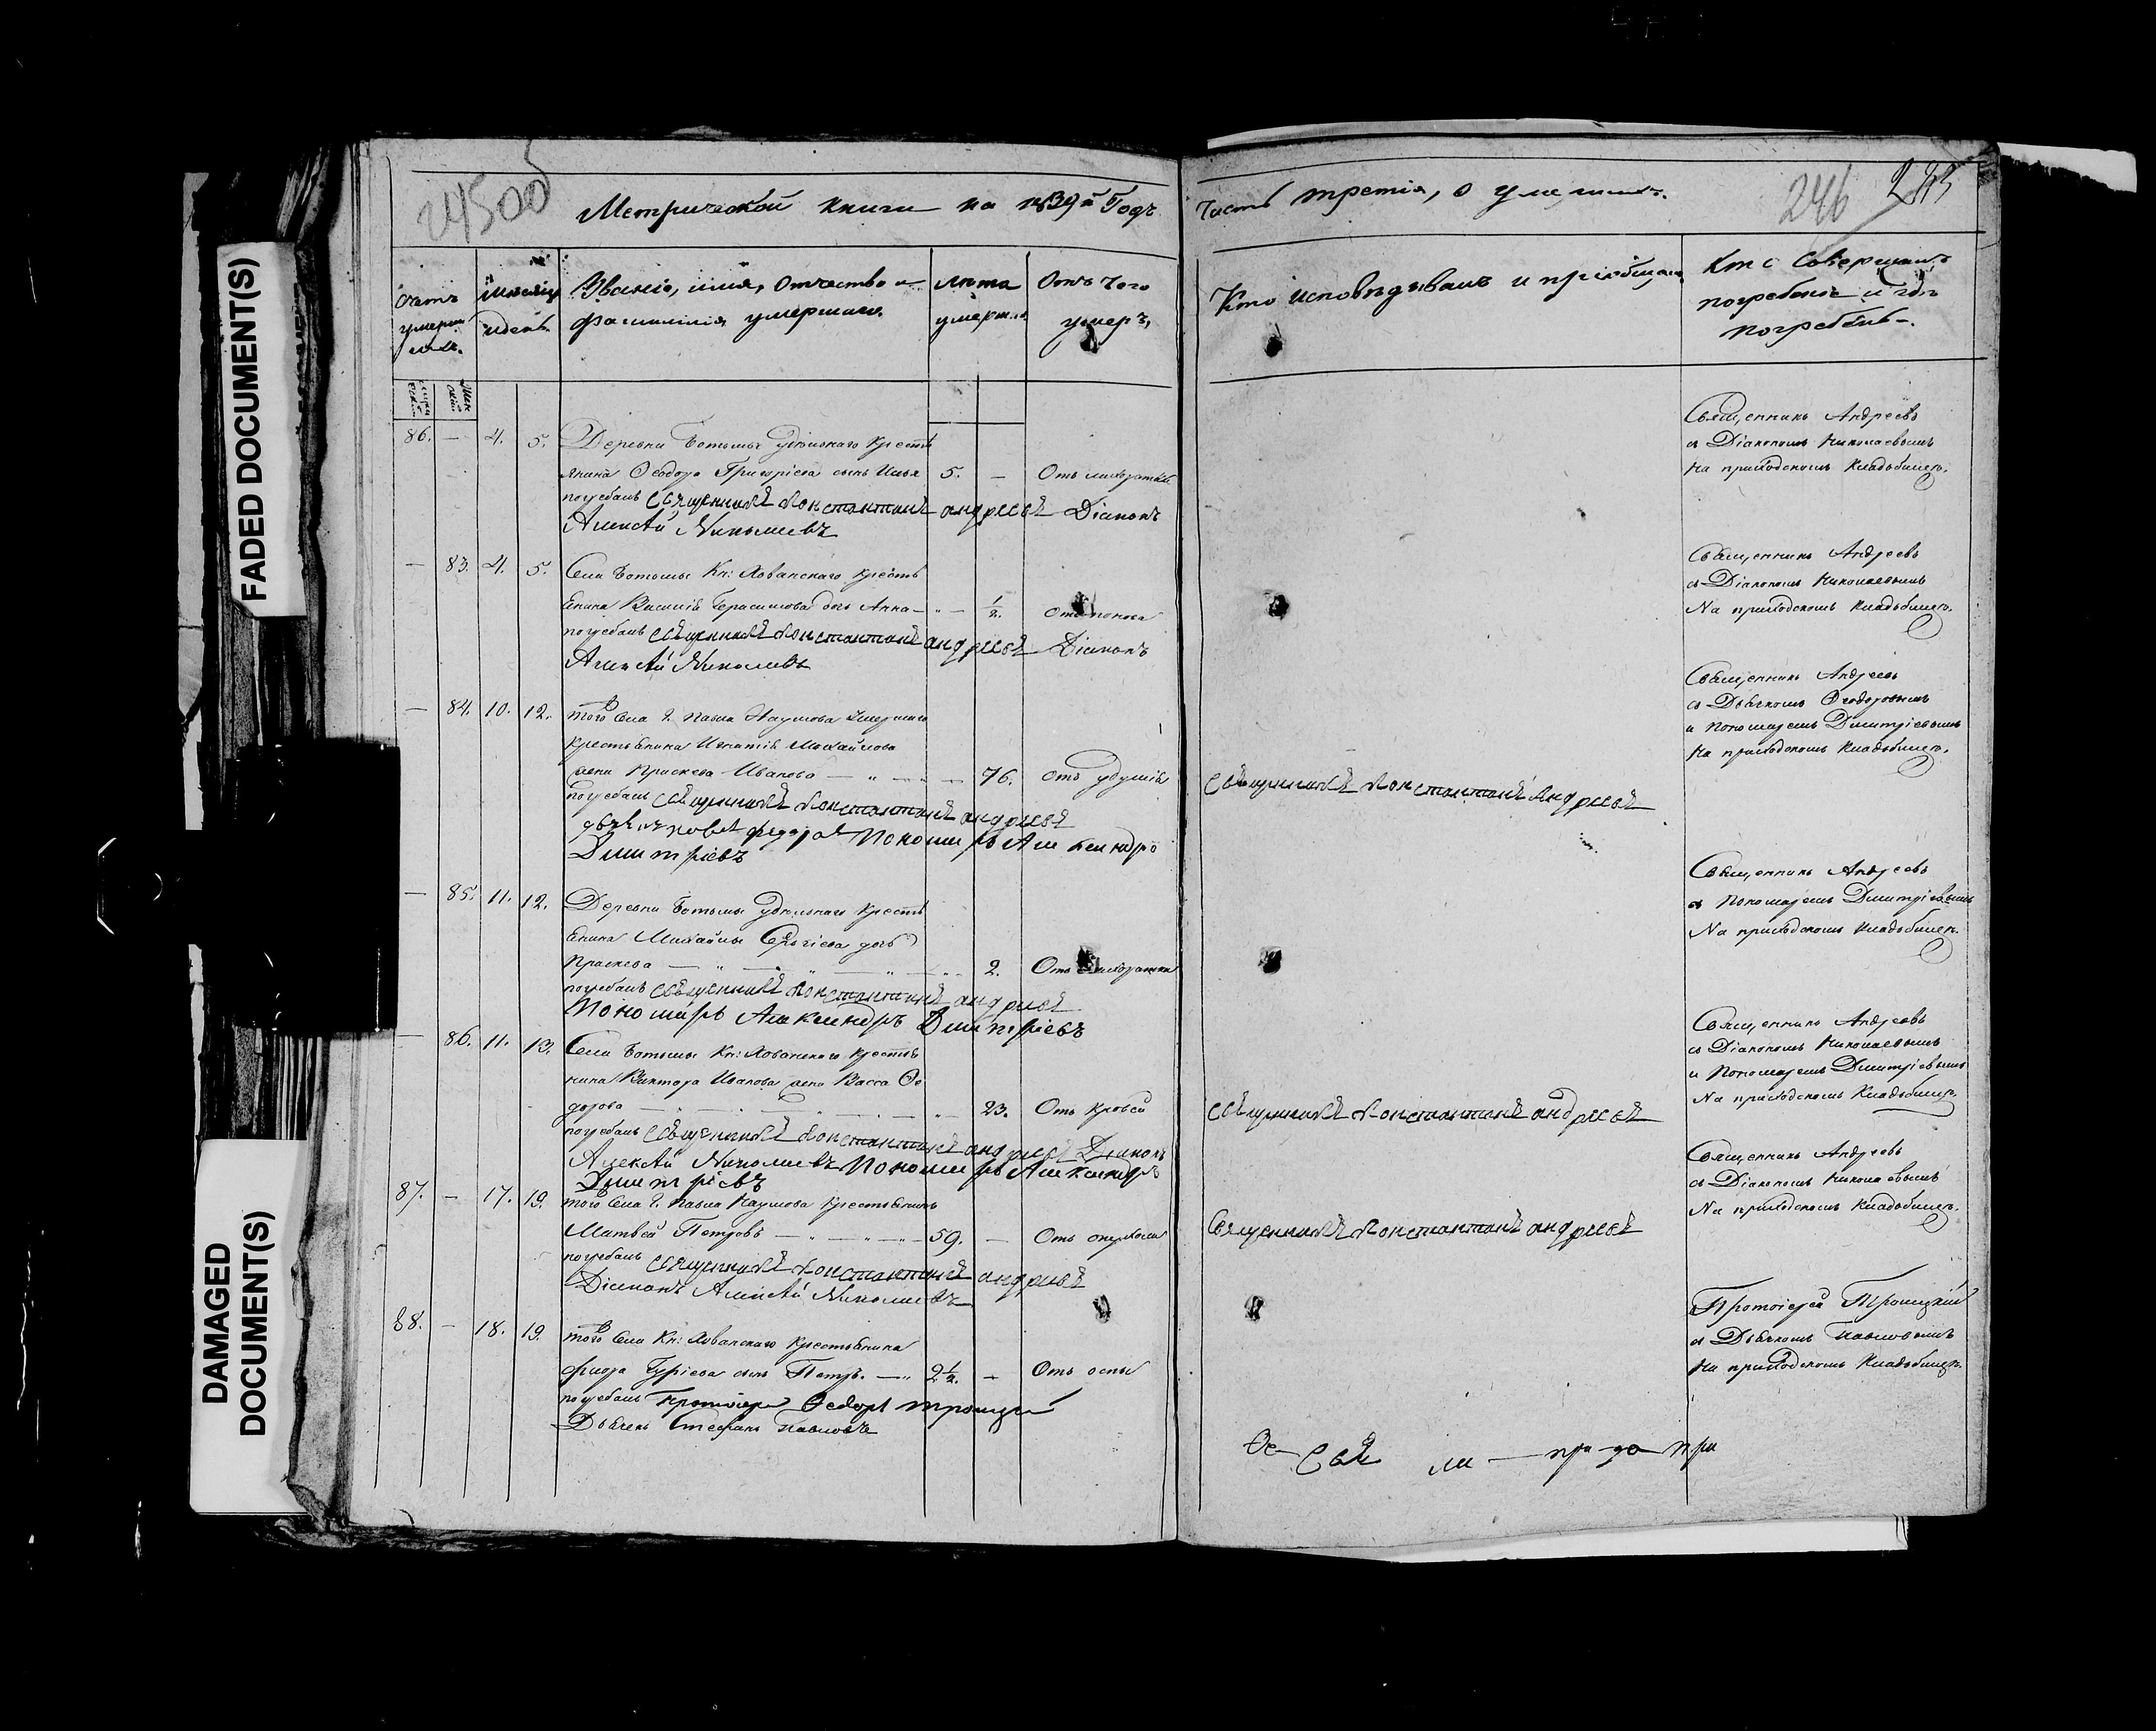 FADED DOCUMENT(S)
DAMAGED DOCUMENT(S)
24500
Метрической книги на 1839й Годъ
Часть третія, о умершихъ.
246
Счетъ умершихъ.
Мѣсяцъ и день
Званіе, имя, отчество и фамилія умершаго.
Лѣта умершаго
Отъ чего умеръ,
Кто исповѣдывалъ и пріобщалъ
Кто совершалъ погребеніе и гдѣ погребенъ.
86. — 4. 5. Деревни Ботьмы Удѣльнаго Кресть
янина Ѳеодора Григоріева сынъ Илья 5. — Отъ лихорадки
погребалъ священникъ Константинъ андреевъ Діаконъ
Алексѣй Николаевъ
Священникъ Андреевъ
съ Діакономъ Николаевымъ
На приходскомъ кладбищѣ.
— 83. 4. 5. Села Ботьмы Кн: Хованскаго кресть
янина Василія Герасимова дочь Анна — ½. Отъ поноса
погребалъ священникъ Константинъ андреевъ Діаконъ
Алексѣй Николаевъ
Священникъ Андреевъ
съ Діакономъ Николаевымъ
На приходскомъ кладбищѣ.
— 84. 10. 12. Того села Г. Павла Наумова умершаго
крестьянина Игнатія Михайлова
жена Праскева Иванова — 76. отъ удушія
погребалъ священникъ Константинъ андреевъ
Федоровъ Пономарь Александръ
Димитріевъ
Священникъ Константинъ Андреевъ
Священникъ Андреевъ
съ Дьячкомъ Ѳеодоровымъ
и Пономаремъ Димитріевымъ
На приходскомъ кладбищѣ.
— 85. 11. 12. Деревни Ботьмы Удѣльнаго кресть
янина Михайлы Сергіева дочь
Праскева — 2. Отъ лихорадки
погребалъ священникъ Константинъ андреевъ
Пономарь Александръ Димитріевъ
Священникъ Андреевъ
съ Пономаремъ Димитріевымъ
На приходскомъ кладбищѣ.
— 86. 11. 13. Села Ботьмы Кн: Хованскаго крестья
нина Виктора Иванова жена Васса Ѳе
дорова — 23. Отъ кровей
погребалъ священникъ Константинъ андреевъ Діаконъ
Алексѣй Николаевъ Пономарь Александръ
Димитріевъ
Священникъ Константинъ андреевъ
Священникъ Андреевъ
съ Діакономъ Николаевымъ
и Пономаремъ Димитріевымъ
На приходскомъ кладбищѣ.
87. — 17. 19. Того села Г. Павла Наумова крестьянинъ
Матвей Петровъ — 59. — Отъ опухоли
погребалъ священникъ Константинъ андреевъ
Діаконъ Алексѣй Николаевъ
Священникъ Константинъ андреевъ
Священникъ Андреевъ
съ Діакономъ Николаевымъ
На приходскомъ кладбищѣ.
88. — 18. 19. Того села Кн: Хованскаго крестьянина
Гурьева сынъ Петръ. — 2½. — Отъ оспы
погребалъ Протоіерей Ѳедоръ Троицкій
Дьячекъ Стефанъ Павловъ
Протоіерей Троицкій
съ Дьячкомъ Павловымъ
На приходскомъ кладбищѣ.